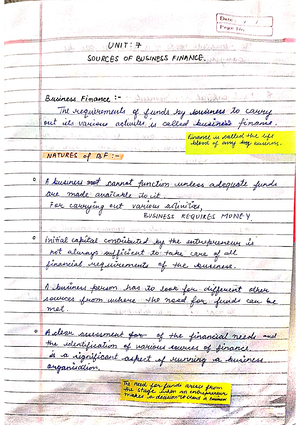 Date
Page No.
UNIT: 7
SOURCES OF BUSINESS FINANCE.
Business Finance :-
The requirements of funds by business to carry
out its various activities is called business finance.
Finance is called the life
blood of any business.
NATURES of BF :-
A business cannot function unless adequate funds
are made available to it.
For carrying out various activities,
BUSINESS REQUIRES MONEY
Initial capital contributed by the entrepreneur is
not always sufficient to take care of all
financial requirements of the business.
A business person has to look for different other
sources from where the need for funds can be
met.
A clear assessment of the financial needs and
the identification of various sources of finance
is a significant aspect of running a business
organisation.
The need for funds arises from
the stage when an entrepreneur
makes a decision to start a business